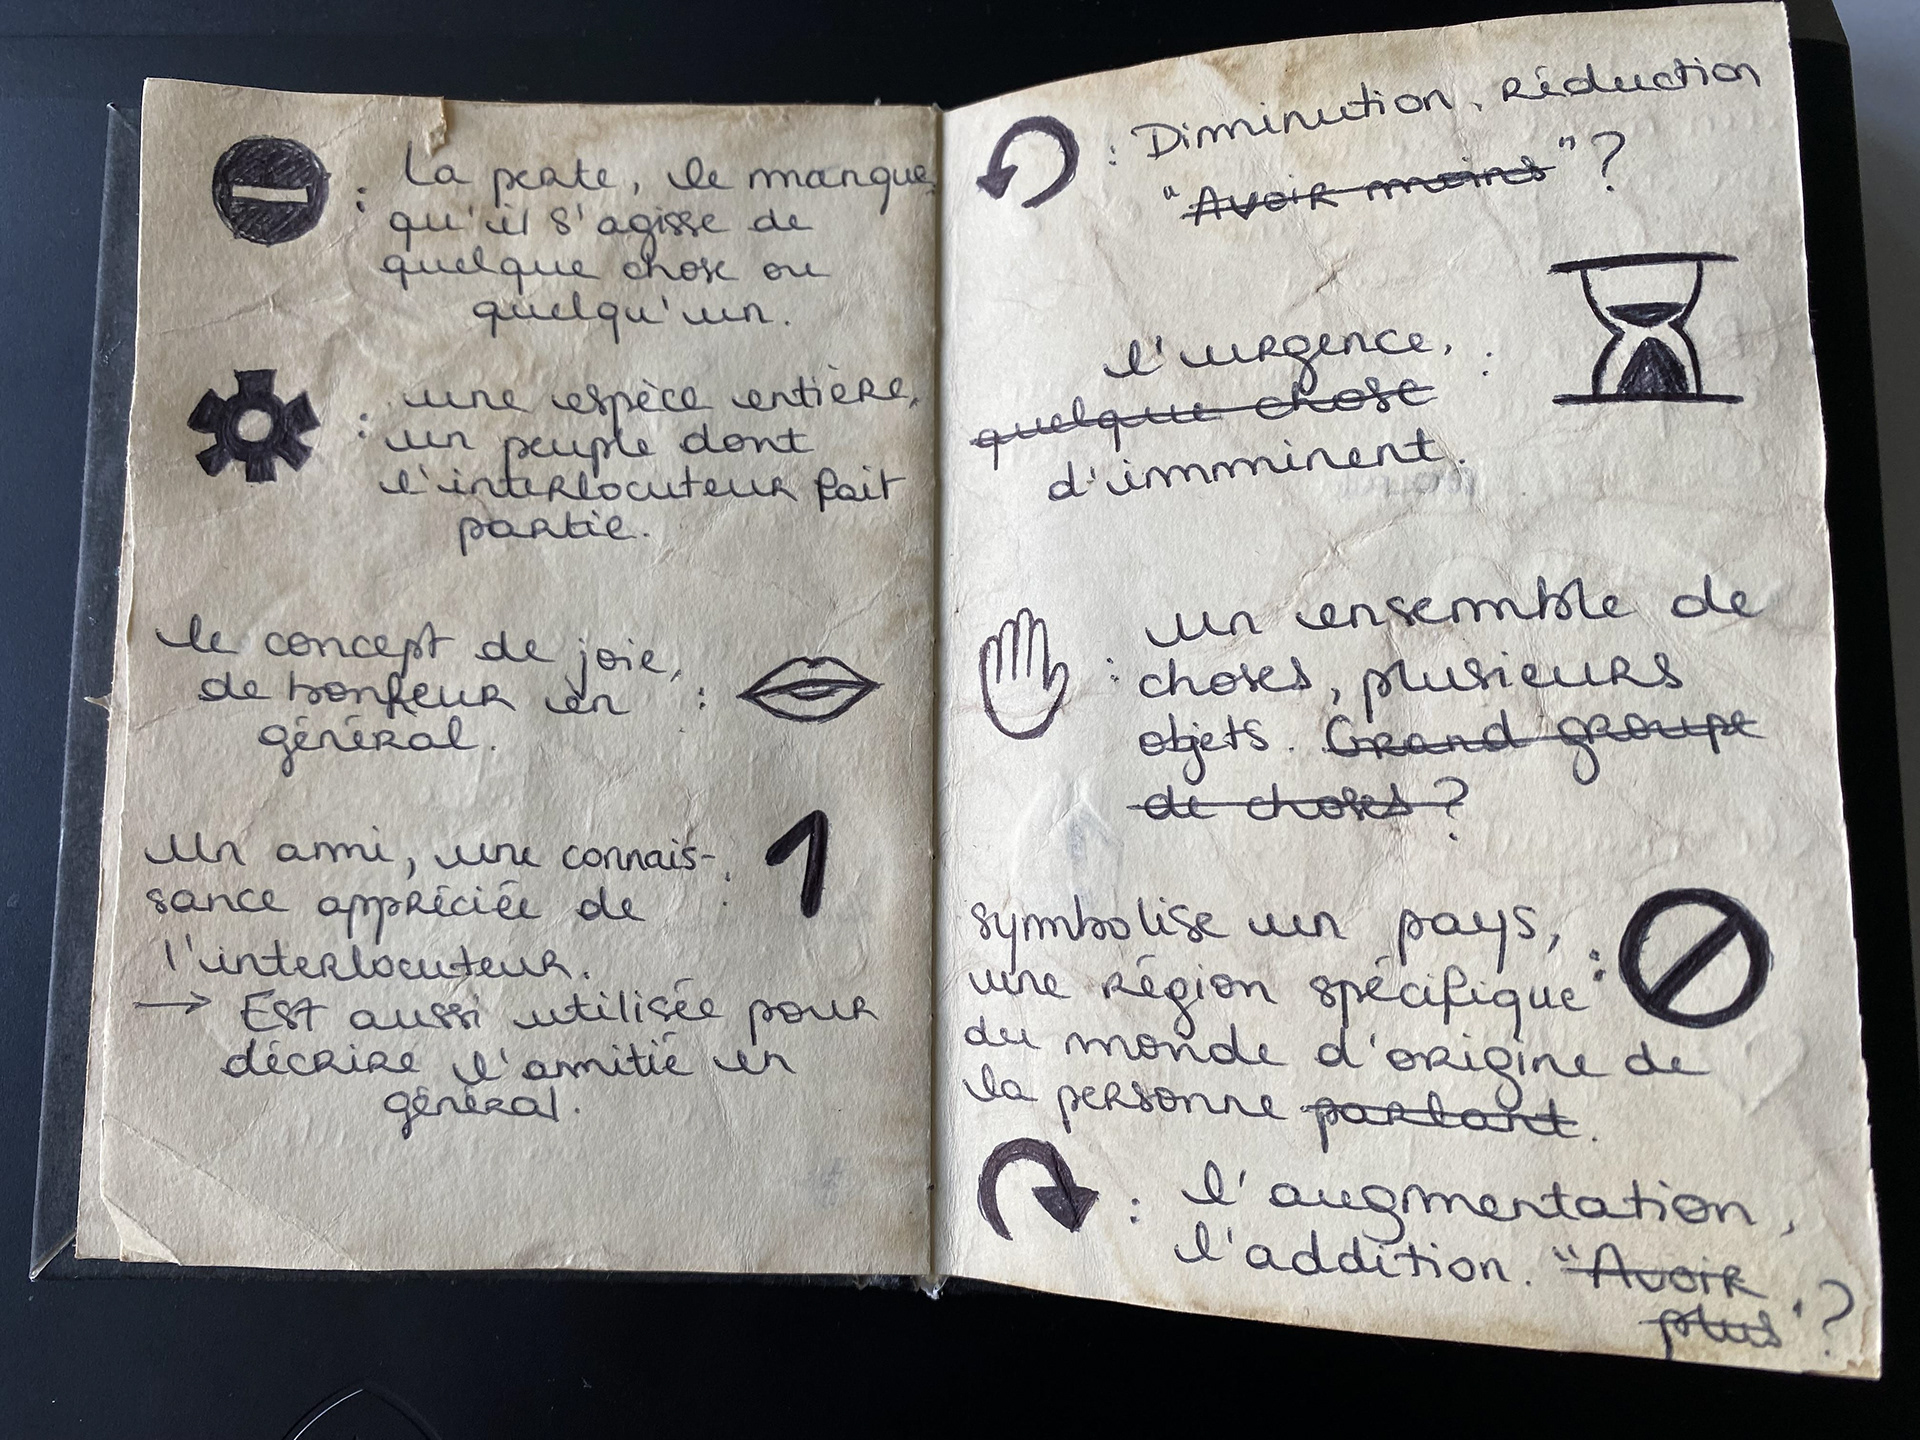 : La perte, le manque,
qu'il s'agisse de
quelque chose ou
quelqu'un.
: une espèce entière,
un peuple dont
l'interlocuteur fait
partie.
le concept de joie,
de bonheur en :
général.
Un ami, une connais- :
sance appréciée de
l'interlocuteur.
→ Est aussi utilisée pour
décrire l'amitié en
général.
: Diminution, réduction
"Avoir moins" ?
l'urgence, :
quelque chose
d'imminent.
: un ensemble de
choses, plusieurs
objets. Grand groupe
de choses ?
symbolise un pays, :
une région spécifique
du monde d'origine de
la personne parlant.
: l'augmentation,
l'addition. "Avoir
plus" ?